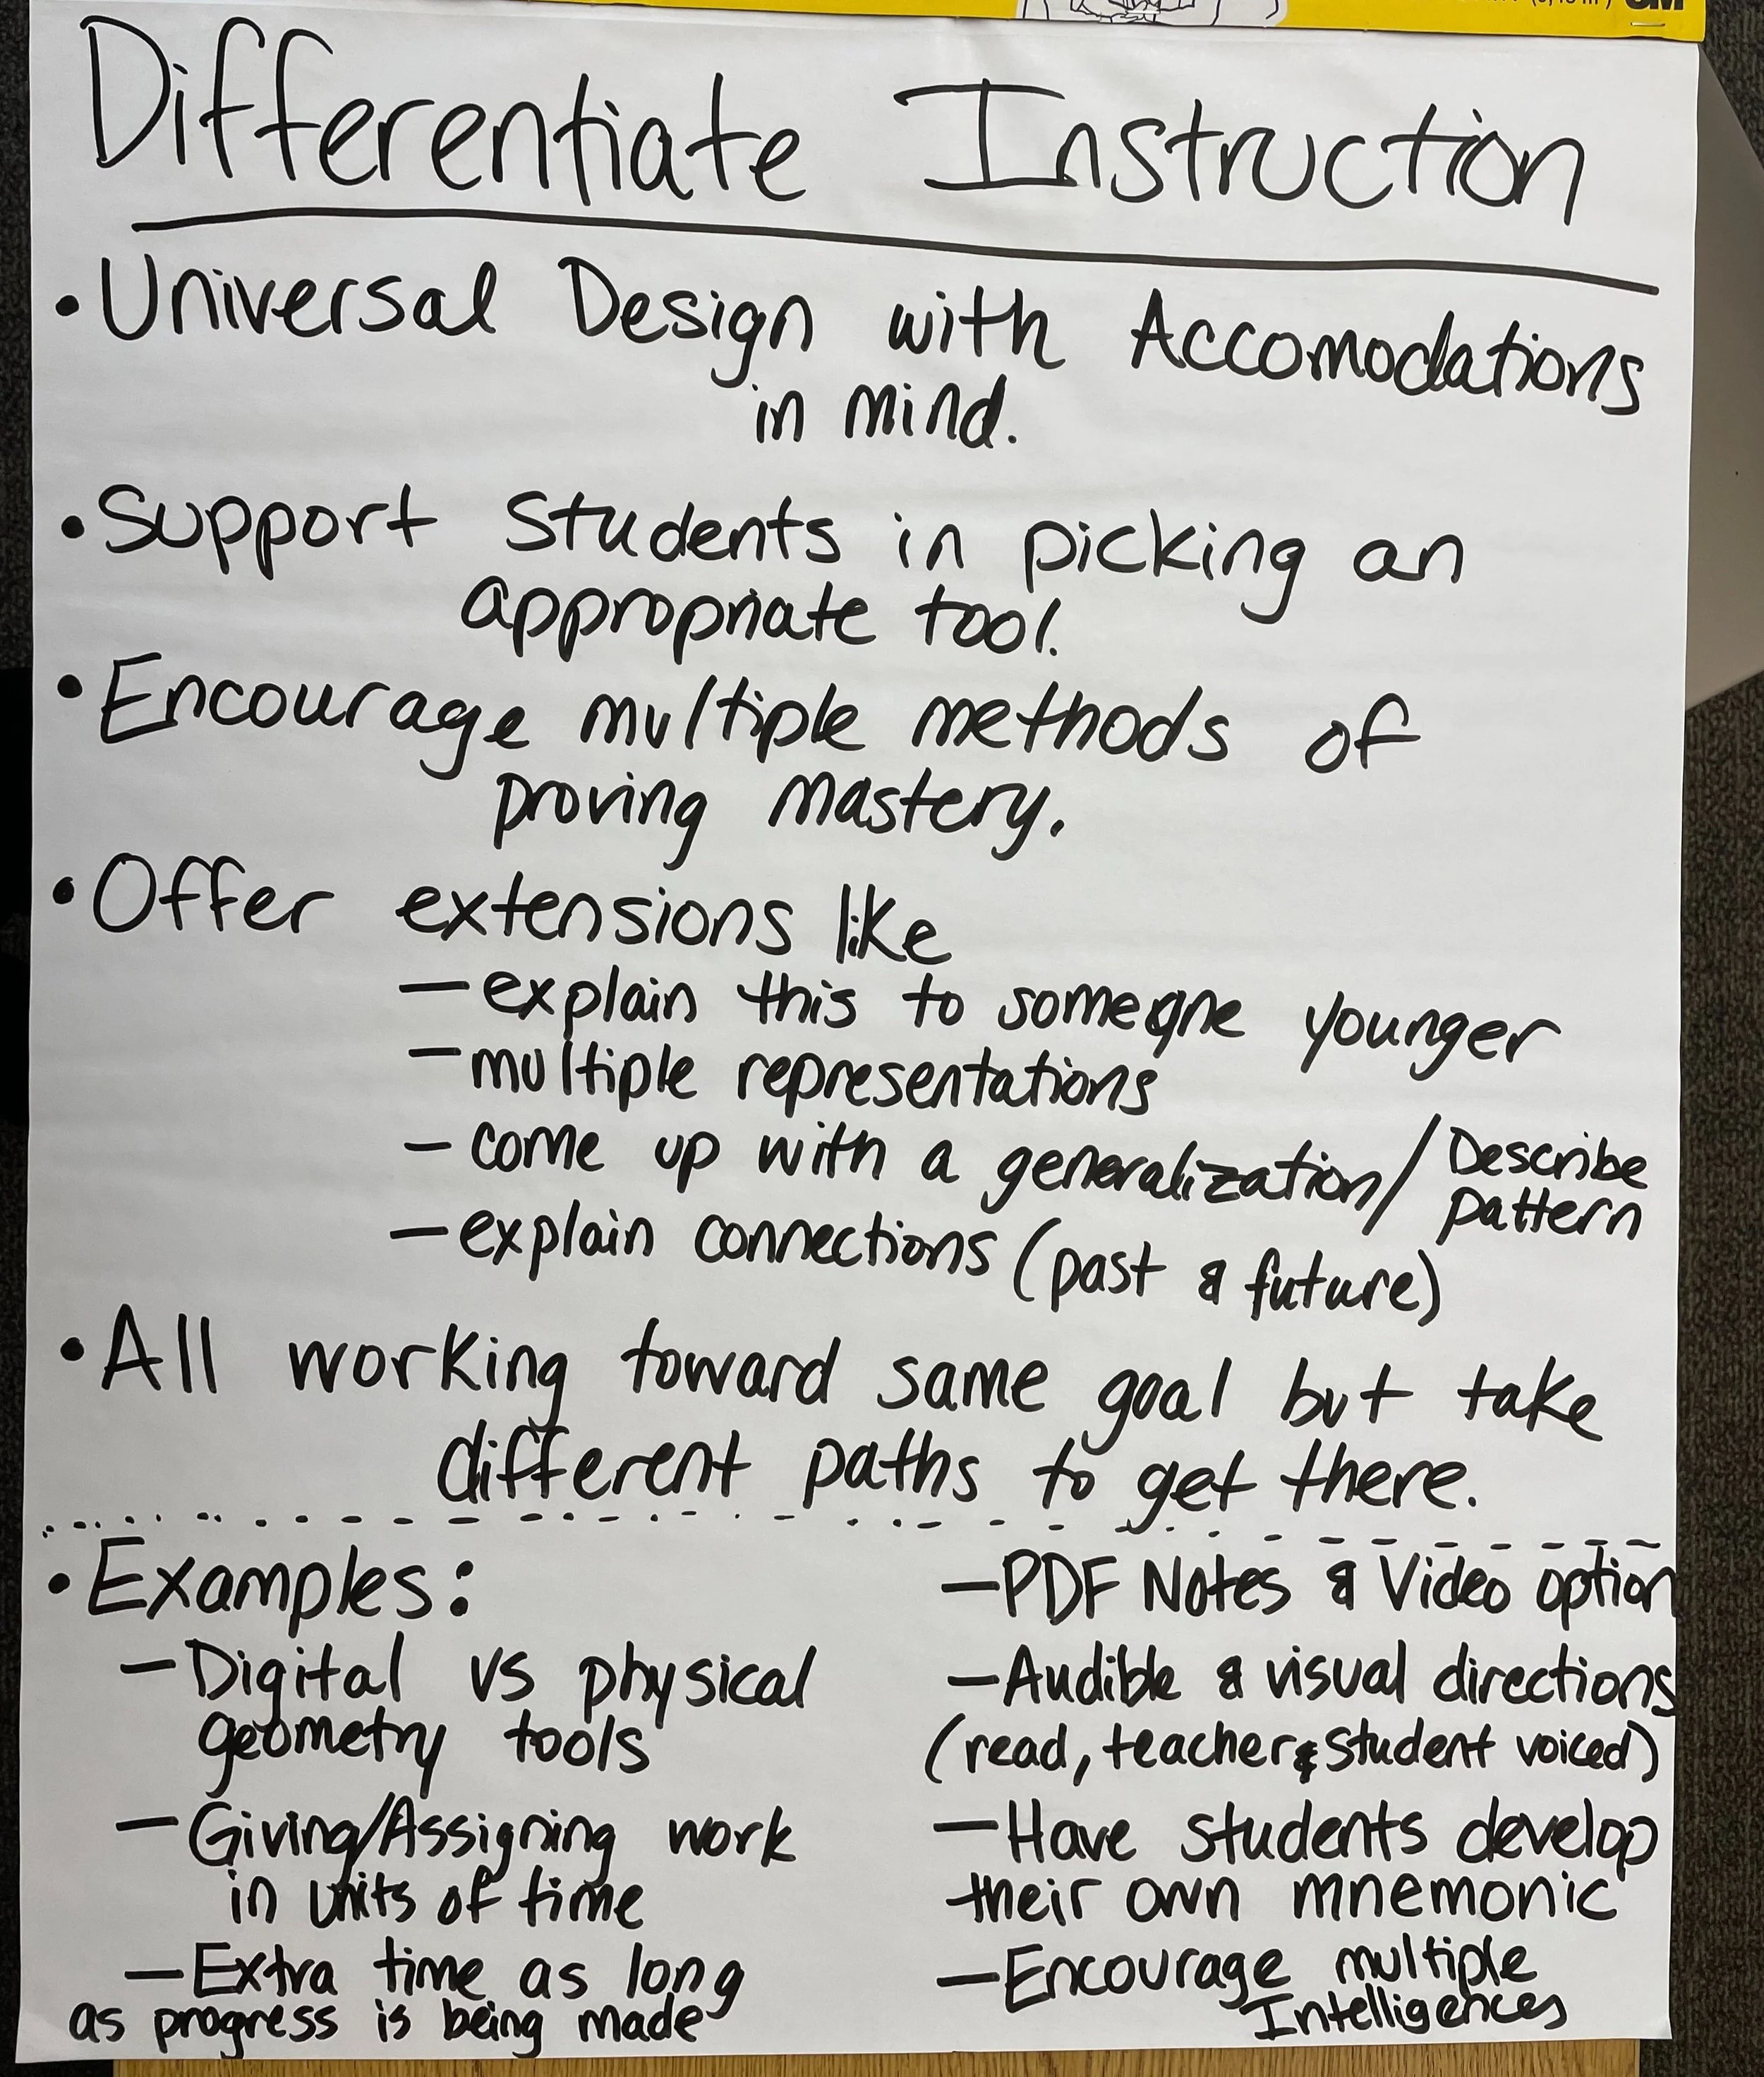 Differentiate Instruction
• Universal Design with Accomodations
in mind.
• Support students in picking an
appropriate tool.
• Encourage multiple methods of
proving mastery.
• Offer extensions like
– explain this to someone younger
– multiple representations
– come up with a generalization/ Describe
pattern
– explain connections (past & future)
• All working toward same goal but take
different paths to get there.
• Examples:
– Digital vs physical
geometry tools
– Giving/Assigning work
in units of time
– Extra time as long
as progress is being made
– PDF Notes & Video option
– Audible & visual directions
(read, teacher & student voiced)
– Have students develop
their own mnemonic
– Encourage multiple
Intelligences